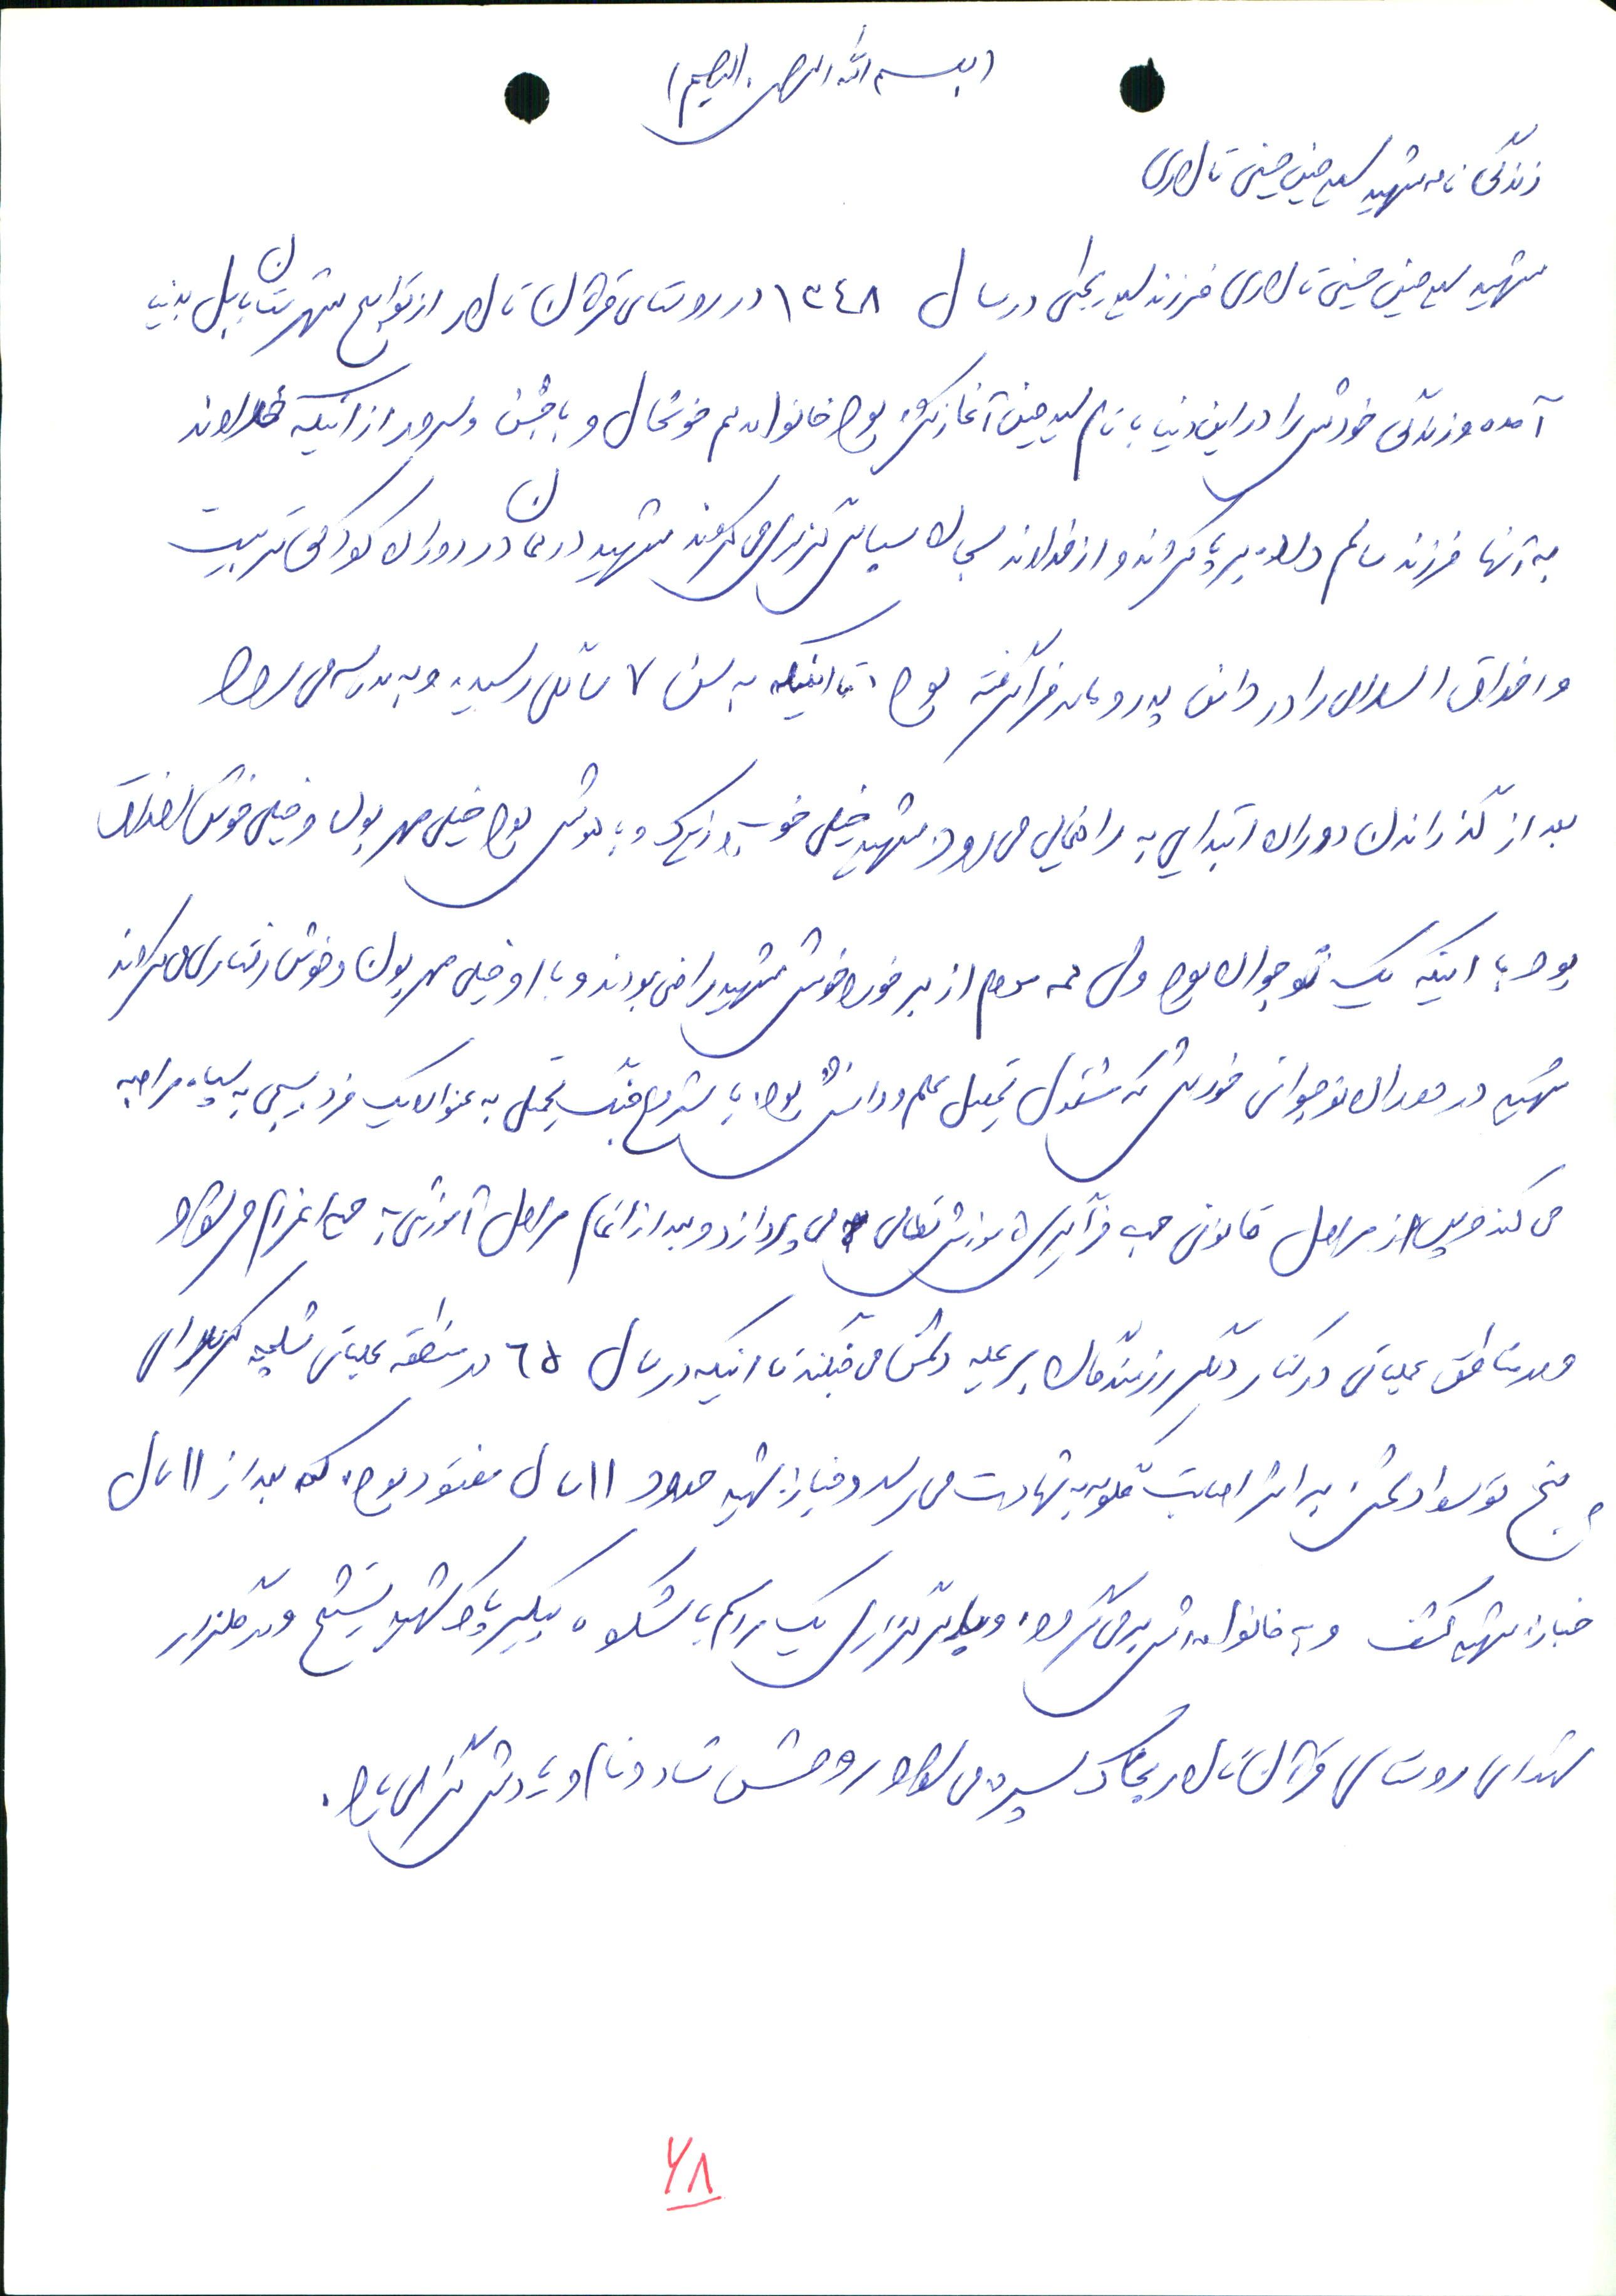 (بسم الله الرحمن الرحیم)
زندگی نامه شهید سید حسین حسینی تالاری
شهید سید حسین حسینی تالاری فرزند سید یحیی در سال ۱۳۴۸ در روستای قران تالار از توابع شهرستان بابل بدنیا
آمده و زندگی خودش را در این دنیا با نام سید حسین آغاز کرد بود خانواده هم خوشحال و با جشن و سرور از اینکه خداوند
به آنها فرزند سالم داده برپا کردند و از خداوند سبحان سپاس گزاری می کردند شهید در نماد در دوران کودکی تربیت
و اخلاق اسلامی را در دامن پدر و مادر فرا گرفته بود. تا اینکه به سن ۷ سالگی رسیده و به مدرسه می رود
بعد از گذراندن دوران ابتدایی به راهنمایی می رود. شهید خیلی خوب و زیرک و با هوش بود خیلی مهربون و خیلی خوش اخلاق
بود با اینکه یک نوجوان بود ولی همه مردم از برخورد خوش شهید راضی بودند و با او خیلی مهربون و خوش رفتاری می کردند
شهید در دوران نوجوانی خودش که مشغول تحصیل علم و دانش بود. با شروع جنگ تحمیلی به عنوان یک فرد بسیجی به سپاه مراجعه
می کند و پس از مراحل قانونی جهت فرآیری آموزش نظامی می پردازد و بعد از اتمام مراحل آموزشی به جبهه اعزام می شود
و در مناطق عملیاتی در کنار دیگر رزمندگان بر علیه دشمن می جنگند تا اینکه در سال ۶۵ در منطقه عملیاتی شلمچه کربلای
پنج توسط دشمن بر اثر اصابت گلوله به شهادت می رسد و جنازه شهید حدود ۱۱ سال مفقود بود. که بعد از ۱۱ سال
جنازه شهید کشف و به خانواده اش برمی گردد. و با برگزاری یک مراسم با شکوه پیکر پاک شهید تشیع و در گلزار
شهدای روستای قران تالار بخاک سپرده می شود روحش شاد و نام و یادش گرامی باد.
۶۸